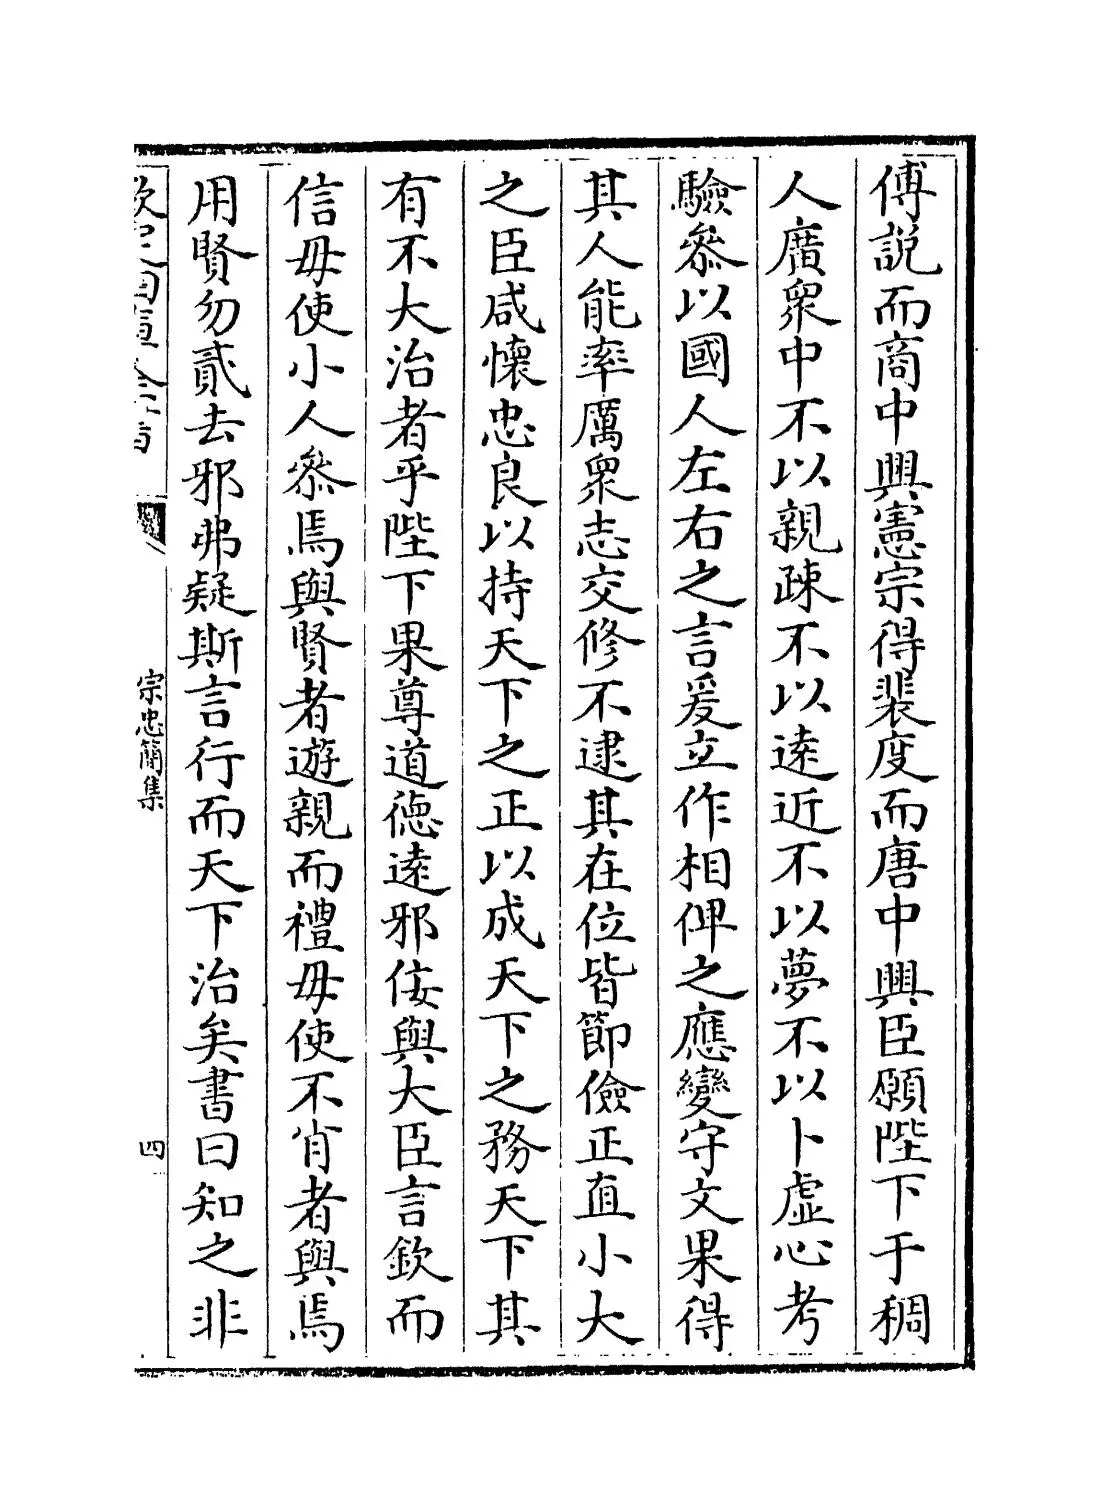 傅説而商中興憲宗得裴度而唐中興臣願陛下于稠
人廣衆中不以親疎不以逺近不以夢不以卜虚心考
驗叅以國人左右之言爰立作相俾之應變守文果得
其人能率厲衆志交修不逮其在位皆節儉正直小大
之臣咸懷忠良以持天下之正以成天下之務天下其
有不大治者乎陛下果尊道德逺邪佞與大臣言欽而
信毋使小人叅焉與賢者遊親而禮毋使不肖者與焉
用賢勿貳去邪弗疑斯言行而天下治矣書曰知之非
欽定四庫全書
宗忠簡集
四